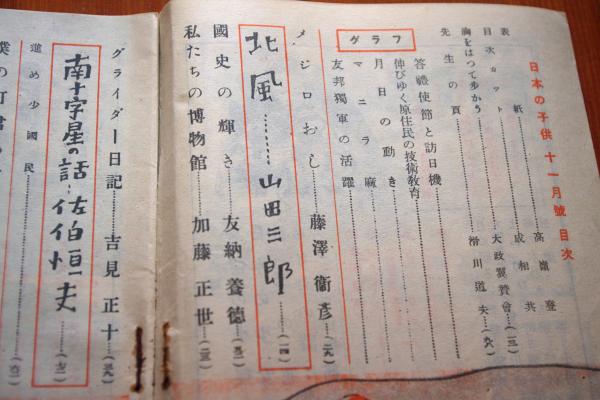 日本の子供 十一月號 目次
表紙……高嶺登
目次カット……成相共
胸をはつて歩かう……大政翼賛會…(一三)
先生の頁……滑川道夫…(六六)
グラフ
答禮使節と訪日機
伸びゆく原住民の技術教育
月日の動き
マニラ麻
友邦獨軍の活躍
メジロおし……藤澤衞彦…(二九)
北風……山田三郎…(一四)
國史の輝き……友納養德…(五二)
私たちの博物館……加藤正世…(三三)
グライダー日記……吉見正十…(三九)
南十字星の話…佐伯恒夫…(六二)
進め少國民……(六一)
僕の町